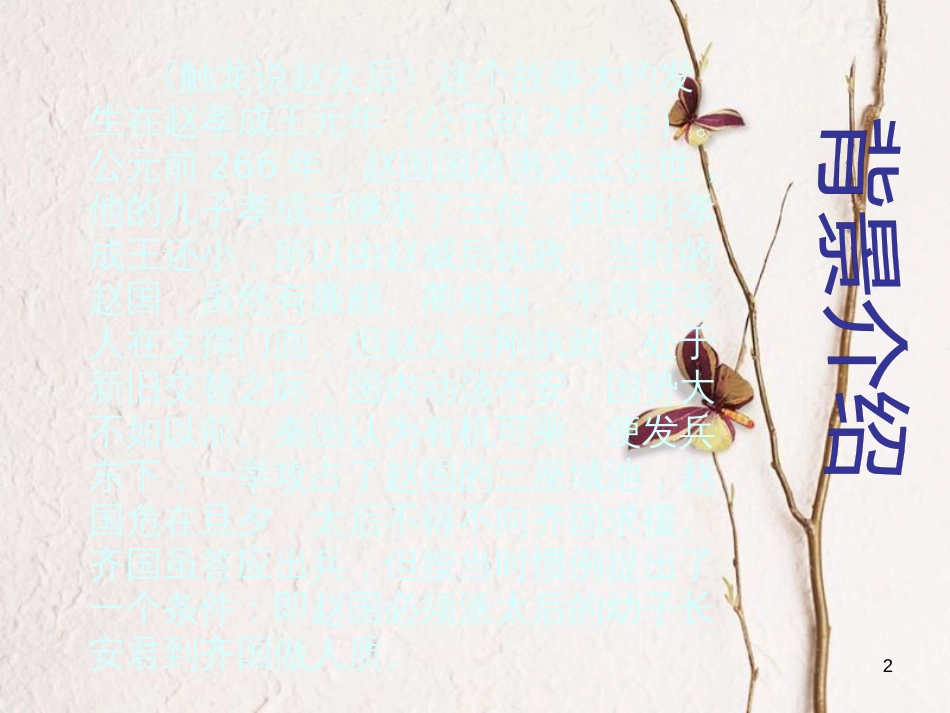 背景介绍
《触龙说赵太后》这个故事大约发
生在赵孝成王元年（公元前 265 年）。
公元前 266 年，赵国国君惠文王去世，
他的儿子孝成王继承了王位，因当时孝
成王还小，所以由赵威后执政。当时的
赵国，虽然有廉颇、蔺相如、平原君等
人在支撑门面，但赵太后刚执政，处于
新旧交替之际，国内动荡不安，国势大
不如以前。秦国认为有机可乘，便发兵
东下，一举攻占了赵国的三座城池，赵
国危在旦夕，太后不得不向齐国求援。
齐国虽答应出兵，但按当时惯例提出了
一个条件：即赵国必须派太后的幼子长
安君到齐国做人质。
2